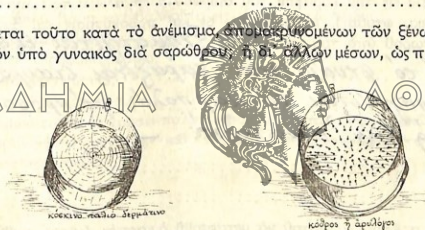 ται τοῦτο κατὰ τὸ ἀνέμισμα, ἀπομακρυνομένων τῶν ξένω
ν ὑπὸ γυναικὸς διὰ σαρώθρου; ἢ δι' ἄλλων μέσων, ὡς π
ΑΔΗΜΙΑ ΑΘ
κόσκινο παλιό δερμάτινο
κόθρος ἢ ἀρυλόγος